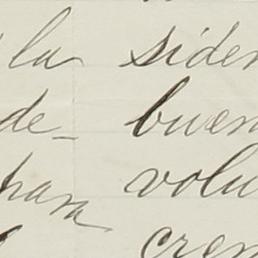 la siden
de- buen
para volu
cren